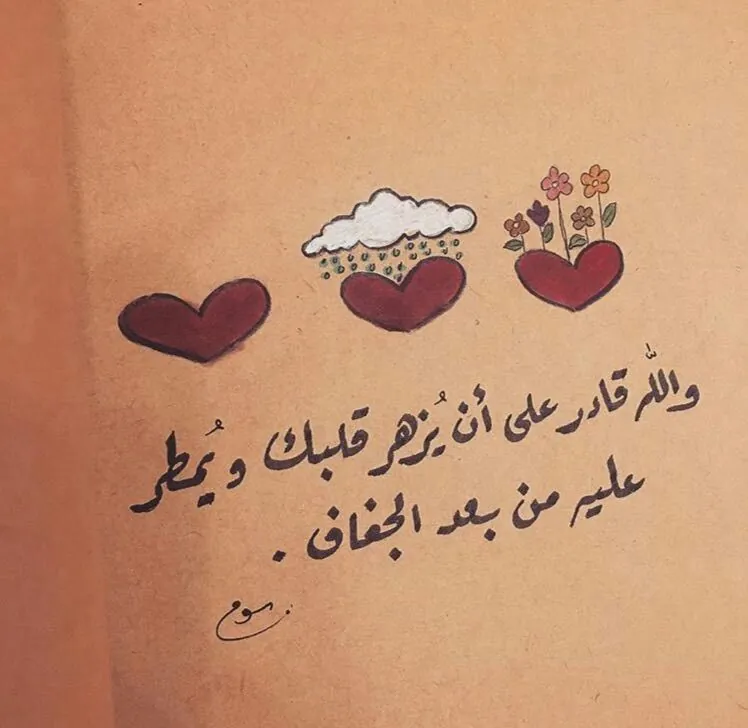 والله قادر على أن يُزهر قلبك ويُمطر
عليه من بعد الجفاف .